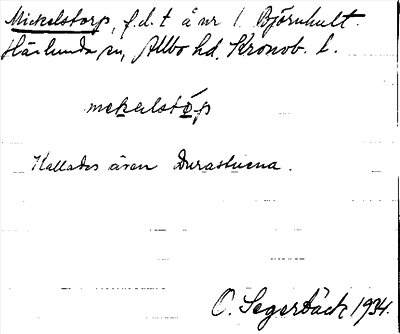 Mickelstorp, f.d. t å nr 1 Björnhult.
Härlunda sn, Allbo hd, Kronob. l.
mekalstóp
Kallades även Durastuena.
O. Segerbäck 1934.